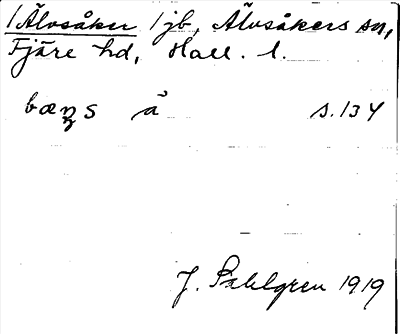 1 Älvsåker /jb, Älvsåkers sn,
Fjäre hd, Hall. l.
bæŋs å s. 134
J. Sahlgren 1919